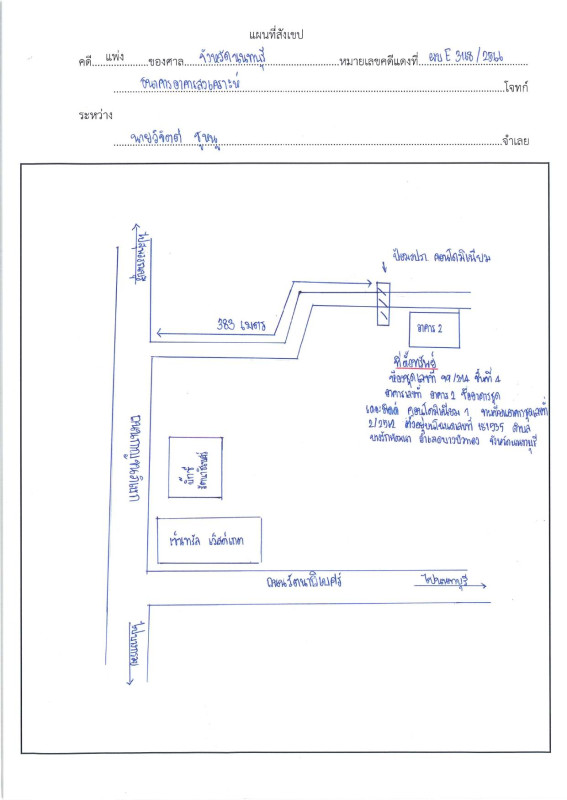 แผนที่สังเขป
คดี แพ่ง ของศาล จังหวัดนนทบุรี หมายเลขคดีแดงที่ ผบ E 3118/2566
ธนาคารอาคารสงเคราะห์ โจทก์
ระหว่าง
นายวิจิตต์ ชูหนู จำเลย
ไปสุพรรณบุรี
ป้อมรปภ. คอนโดมิเนียม
383 เมตร
อาคาร 2
ที่ตั้งทรัพย์
ห้องชุดเลขที่ 99/214 ชั้นที่ 4
อาคารเลขที่ อาคาร 2 ชื่ออาคารชุด
คอนโดมิเนียม 1 ทะเบียนอาคารชุดเลขที่
2/2542 ตั้งอยู่บนโฉนดเลขที่ 181955 ตำบล
บางรักพัฒนา อำเภอบางบัวทอง จังหวัดนนทบุรี
ถนนกาญจนาภิเษก
บิ๊กซี
รัตนาธิเบศร์
เซ็นทรัล เวสต์เกต
ถนนรัตนาธิเบศร์
ไปนนทบุรี
ไปบางแค